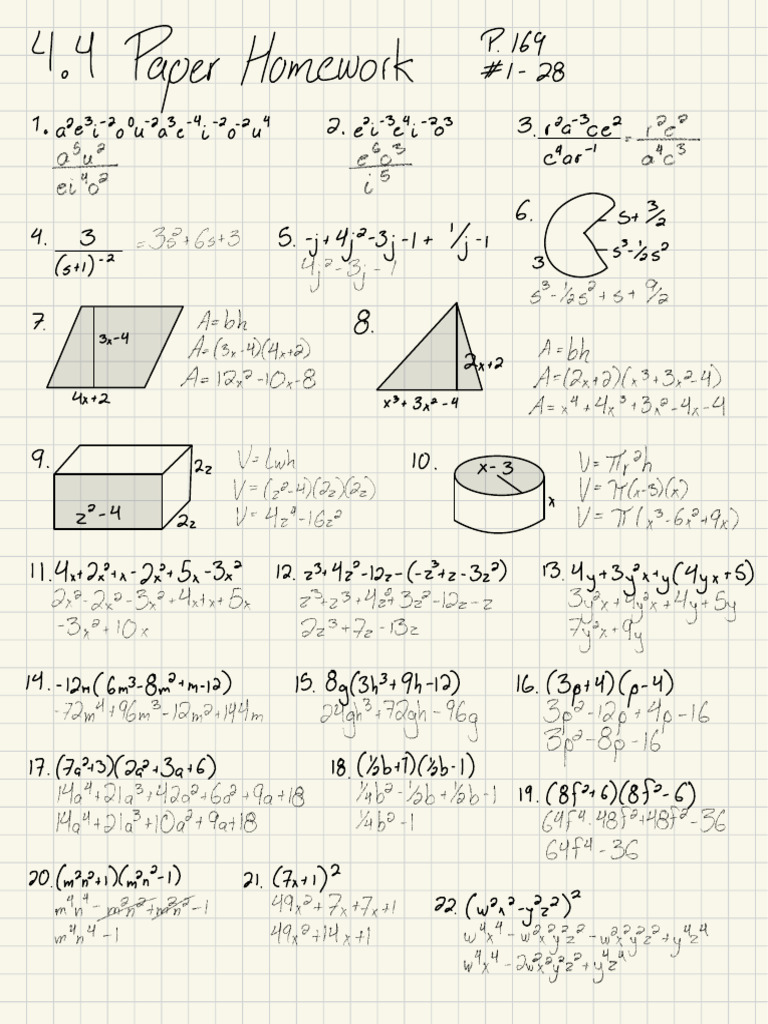 4.4 Paper Homework
P. 169
#1-28
1. a²e³i⁻²o⁰u⁻²a³e⁻⁴i⁻²o⁻²u⁴
a⁵u²
ei⁴o²
2. e²i⁻³e⁴i⁻²o³
e⁶o³
i⁵
3. r²a⁻³ce² = r²e²
c⁴ar⁻¹ a⁴c³
4. 3 = 3s²+6s+3
(s+1)⁻²
5. -j+4j²-3j-1+ 1/j-1
4j²-3j-1
6.
s+3/2
s³-1/2s²
3
s³-1/2s²+s+9/2
7.
3x-4
4x+2
A=bh
A=(3x-4)(4x+2)
A=12x²-10x-8
8.
2x+2
x³+3x²-4
A=bh
A=(2x+2)(x³+3x²-4)
A=x⁴+4x³+3x²-4x-4
9.
2z
z²-4
2z
V=Lwh
V=(z²-4)(2z)(2z)
V=4z⁴-16z²
10.
x-3
x
V=πr²h
V=π(x-3)(x)
V=π(x³-6x²+9x)
11. 4x+2x²+x-2x²+5x-3x²
2x²-2x²-3x²+4x+x+5x
-3x²+10x
12. z³+4z²-12z-(-z³+z-3z²)
z³+z³+4z²+3z²-12z-z
2z³+7z-13z
13. 4y+3y²x+y(4yx+5)
3y²x+4y²x+4y+5y
7y²x+9y
14. -12m(6m³-8m²+m-12)
-72m⁴+96m³-12m²+144m
15. 8g(3h³+9h-12)
24gh³+72gh-96g
16. (3p+4)(p-4)
3p²-12p+4p-16
3p²-8p-16
17. (7a²+3)(2a²+3a+6)
14a⁴+21a³+42a²+6a²+9a+18
14a⁴+21a³+10a²+9a+18
18. (1/2b+1)(1/2b-1)
1/4b²-1/2b+1/2b-1
1/4b²-1
19. (8f²+6)(8f²-6)
64f⁴-48f²+48f²-36
64f⁴-36
20. (m²n²+1)(m²n²-1)
m⁴n⁴-m²n²+m²n²-1
m⁴n⁴-1
21. (7x+1)²
49x²+7x+7x+1
49x²+14x+1
22. (w²x²-y²z²)²
w⁴x⁴-w²x²y²z²-w²x²y²z²+y⁴z⁴
w⁴x⁴-2w²x²y²z²+y⁴z⁴